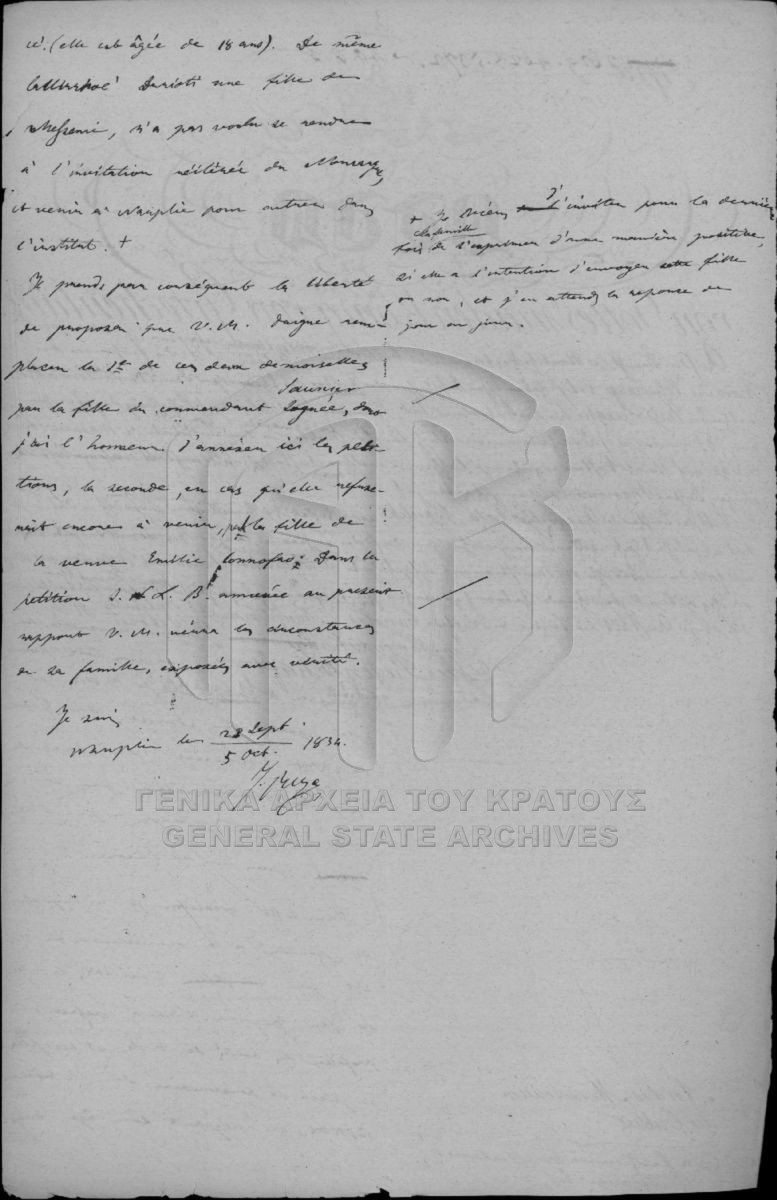 cé. (elle est âgée de 18 ans). De même
Callirhoé Darioti une fille de
Messenie, n'a pas voulu se rendre
à l'invitation réitérée du
et venir à Nauplie pour entrer dans
l'institut. +
Je prends par conséquent la liberté
de proposer que V. M. daigne rem-
placer la 1re de ces deux demoiselles
Saunier
par la fille du commandant, dont
j'ai l'honneur d'annexer ici les péti-
tions, la seconde, en cas qu'elle refuse-
rait encore à venir, par la fille de
la veuve Emilie Dans la
petition L. B. annexée au present
rapport V. M. verra les circonstances
de sa famille, exposées avec vérité.
Je suis
Nauplie le 23 Sept / 5 Oct. 1834.
+ Je viens l'inviter pour la dernière
sa famille
fois de s'exprimer d'une manière positive,
si elle a l'intention d'envoyer cette fille
ou non, et j'en attends la reponse de
jour en jour.
ΓΕΝΙΚΑ ΑΡΧΕΙΑ ΤΟΥ ΚΡΑΤΟΥΣ
GENERAL STATE ARCHIVES